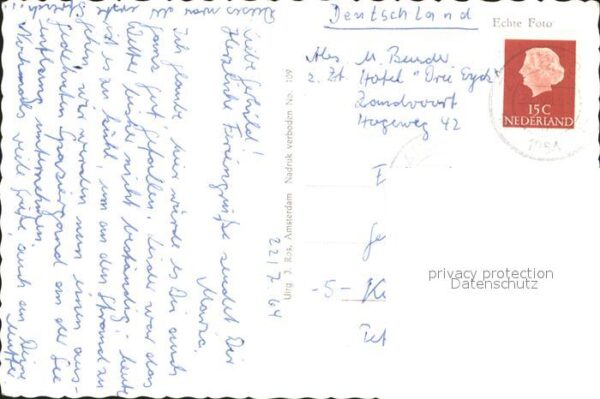 Deutschland
Echte Foto
Abs. M. Bender
z. Zt. Hotel "Drie
Zandvoort
Hogeweg 42
15 C
NEDERLAND
-5-
privacy protection
Datenschutz
Uitg. J. Ros, Amsterdam Nadruk verboden No. 109
22/7. 64
Liebe
Herzliche Feriengrüße sendet Dir
Maria.
Ich glaube, hier würde es Dir auch
ganz gut gefallen. Leider war das
Wetter bisher nicht beständig, heute
ist es zu kühl, um an den Strand zu
gehen, wir werden nun einen aus-
gedehnten Spaziergang an der See
entlang unternehmen.
Nochmals viele Grüße, auch an Deine
Mutter